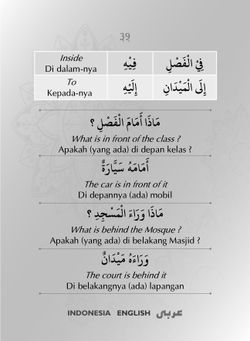 39
Inside
Di dalam-nya
فِيْهِ
فِيْ الْفَصْلِ
To
Kepada-nya
إِلَيْهِ
إِلَى الْمَيْدَانِ
مَاذَا أَمَامَ الْفَصْلِ ؟
What is in front of the class ?
Apakah (yang ada) di depan kelas ?
أَمَامَهُ سَيَّارَةٌ
The car is in front of it
Di depannya (ada) mobil
مَاذَا وَرَاءَ الْمَسْجِدِ ؟
What is behind the Mosque ?
Apakah (yang ada) di belakang Masjid ?
وَرَاءَهُ مَيْدَانٌ
The court is behind it
Di belakangnya (ada) lapangan
INDONESIA ENGLISH عربي